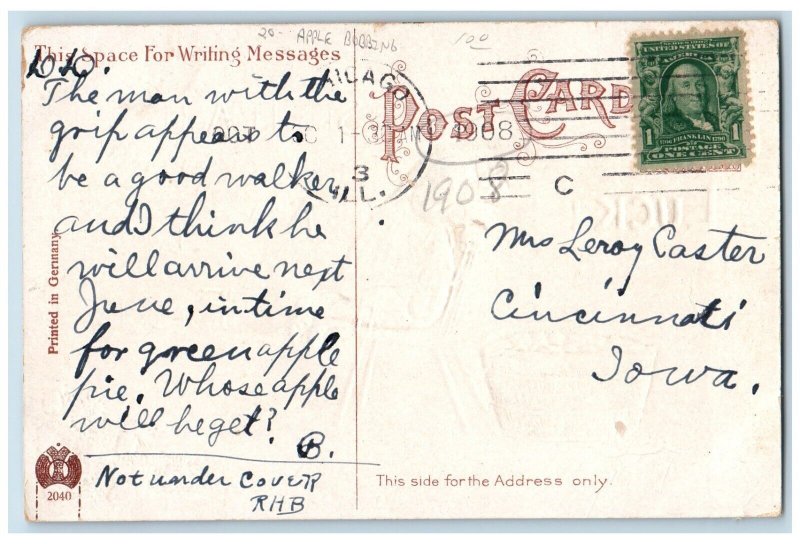 20- APPLE BOBBING
100
This Space For Writing Messages
The man with the
grip appears to
be a good walker
and I think he
will arrive next
June, in time
for green apple
pie. Whose apple
will he get?
B.
Not under cover
RHB
Printed in Germany
2040
POST CARD
CHICAGO
OCT
1908
3
ILL.
C
1908
UNITED STATES OF AMERICA
1 FRANKLIN 1
POSTAGE
ONE CENT
Mrs Leroy Caster
Cincinnati
Iowa.
This side for the Address only.